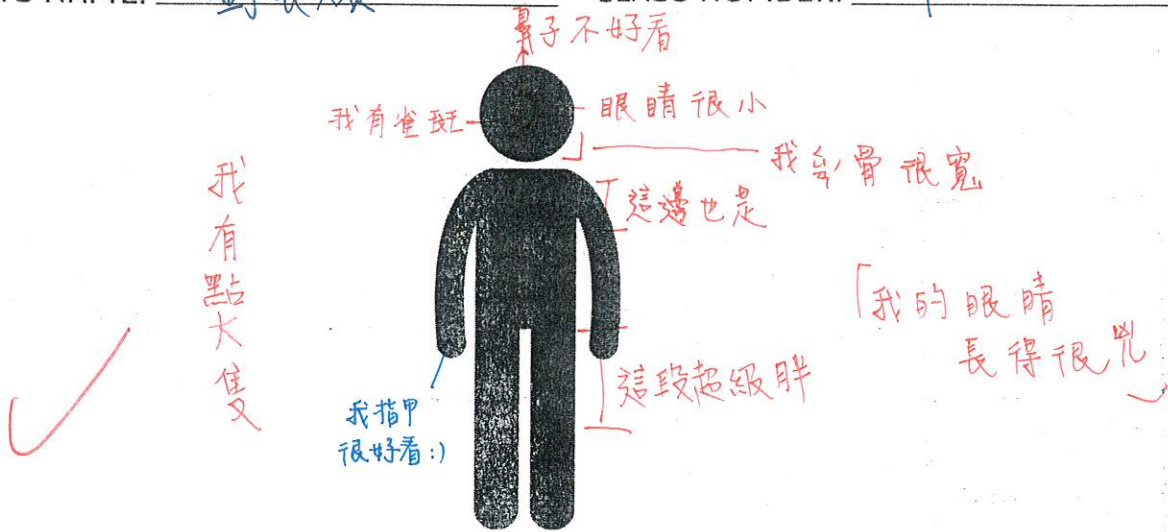 鼻子不好看
我有雀斑
眼睛很小
我身骨很寬
這邊也是
我有點大隻
「我的眼睛
長得很兇」
這段超級胖
我指甲
很好看:)